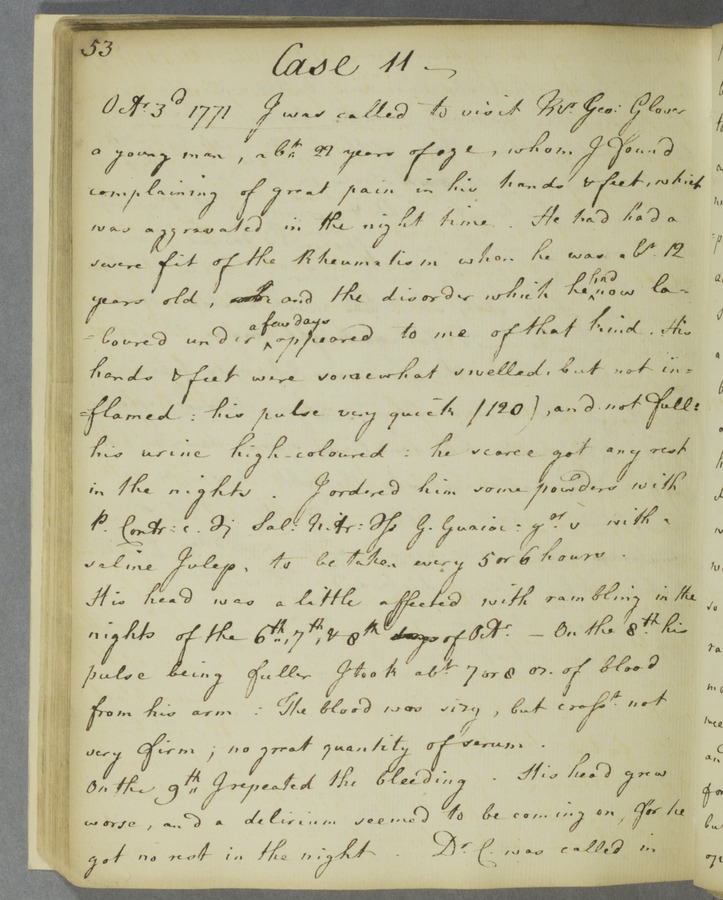 53
Case 11
Octr. 3d 1771 I was called to visit Mr. Geo: Glover
a young man, abt. 21 years of age, whom I found
complaining of great pain in his hands & feet, which
was aggravated in the night time. He had had a
severe fit of the Rheumatism when he was abt. 12
years old, and the disorder which he had now la=
=boured under a few days appeared to me of that kind. His
hands & feet were somewhat swelled, but not in=
=flamed: his pulse very quick (120), and not full:
his urine high-coloured: he scarce got any rest
in the nights. I ordered him some powders with
P. Contr: c. ℈j Sal: Nitr: ℈ſs G. Guaiac: gr. v with a
saline Julep, to be taken every 5 or 6 hours.
His head was a little affected with rambling in the
nights of the 6th, 7th, & 8th days of Octr. — On the 8th his
pulse being fuller I took abt. 7 or 8 oz. of blood
from his arm: The blood was sizy, but crasst. not
very firm; no great quantity of serum.
On the 9th I repeated the bleeding. His head grew
worse, and a delirium seemed to be coming on, for he
got no rest in the night. Dr. C. was called in